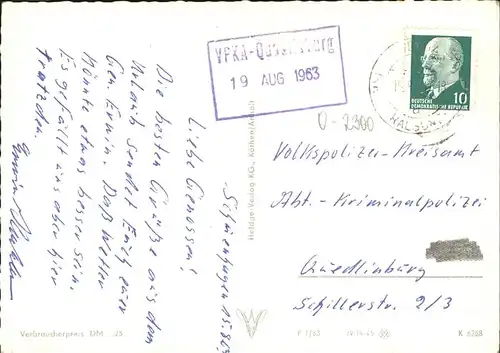 Schönhagen 15.8.63
Liebe Genossen!
Die besten Grüße aus dem
Urlaub sendet Euch euer
Gen. Erwin. Das Wetter
könnte etwas besser sein.
Es gefällt uns aber hier
trotzdem.
Erwin
VPKA-Quedlinburg
19 AUG 1963
DEUTSCHE
DEMOKRATISCHE REPUBLIK
10
0-2300
Volkspolizei-Kreisamt
Abt.-Kriminalpolizei
Quedlinburg
Schillerstr. 2/3
Heldge-Verlag KG., Köthen/Anhalt
Verbraucherpreis DM -,25
P 1/63
K 6268